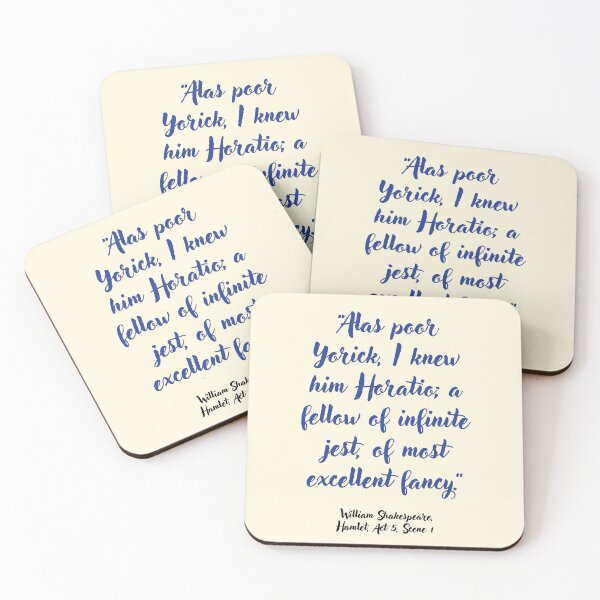 "Alas poor
Yorick, I knew
him Horatio; a
most
"Alas poor
Yorick, I knew
him Horatio; a
fellow of infinite
jest, of most
"Alas poor
Yorick, I knew
him Horatio; a
fellow of infinite
jest, of most
excellent fancy
William
Hamlet, Act
"Alas poor
Yorick, I knew
him Horatio; a
fellow of infinite
jest, of most
excellent fancy."
William Shakespeare,
Hamlet, Act 5, Scene 1